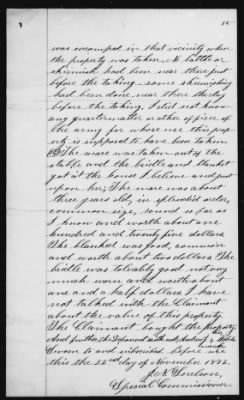 15
was encamped in that vicinity when
the property was taken. No battle or
skirmish had been near there just
before the taking some skirmishing
had been done near there the day
before the taking. I did not know
any quartermaster or other officer of
the army for whose use this prop-
erty is supposed to have been taken
The mare was taken out of the
stable and the bridle and blanket
got at the house I believe and put
upon her; The mare was about
three years old, in splendid order,
common size, sound so far as
I know and worth about one
hundred and twenty five dollars
The blanket was good, common
and worth about two dollars The
bridle was tolerably good not very
much worn and worth about
one and a half dollars I have
not talked with the Claimant
about the value of this property.
The Claimant bought the property
And further the Deponent saith not.
Sworn to and subscribed before me
this the 22nd day of November 1872.
Special Commissioner